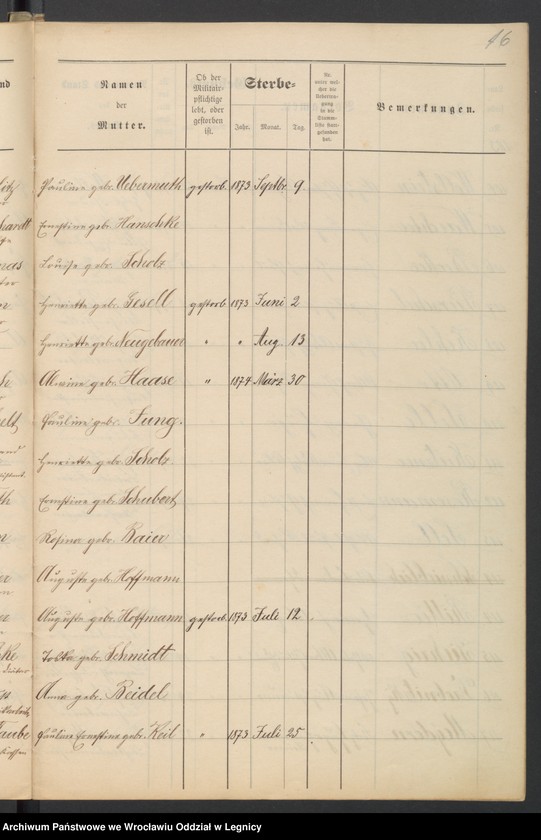 16
Namen der Mutter.
Ob der Militair-pflichtige lebt, oder gestorben ist.
Sterbe-
Jahr. Monat. Tag.
Bemerkungen.
Pauline geb. Uebermuth gestorb. 1873 Septbr. 9
Ernestine geb. Hanschke
Louise geb. Scholz
Henriette geb. Gesell gestorb. 1873 Juni 2
Henriette geb. Neugebauer " " Aug 13
Alwine geb. Haase " 1874 März 30
Pauline geb. Jung.
Henriette geb. Scholz
Ernestine geb. Schubert
Rosina geb. Baier
Auguste geb. Hoffmann
Auguste geb. Hoffmann gestorb. 1873 Juli 12
geb. Schmidt
Anna geb. Beidel
Pauline Ernestine geb. Keil " 1873 Juli 25
Archiwum Państwowe we Wrocławiu Oddział w Legnicy